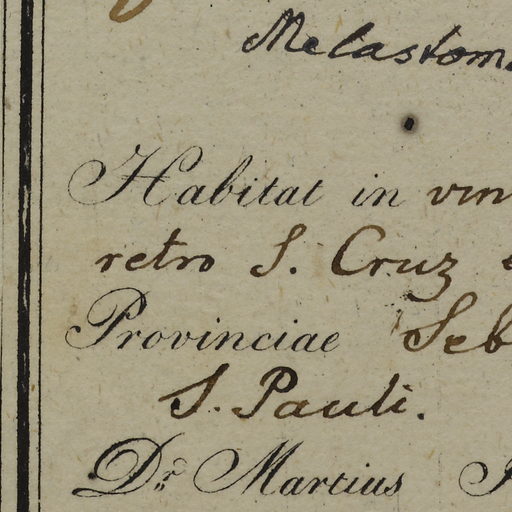 Melastom
Habitat in vin
retro S. Cruz
Provinciae Seb
S. Pauli.
Dr. Martius